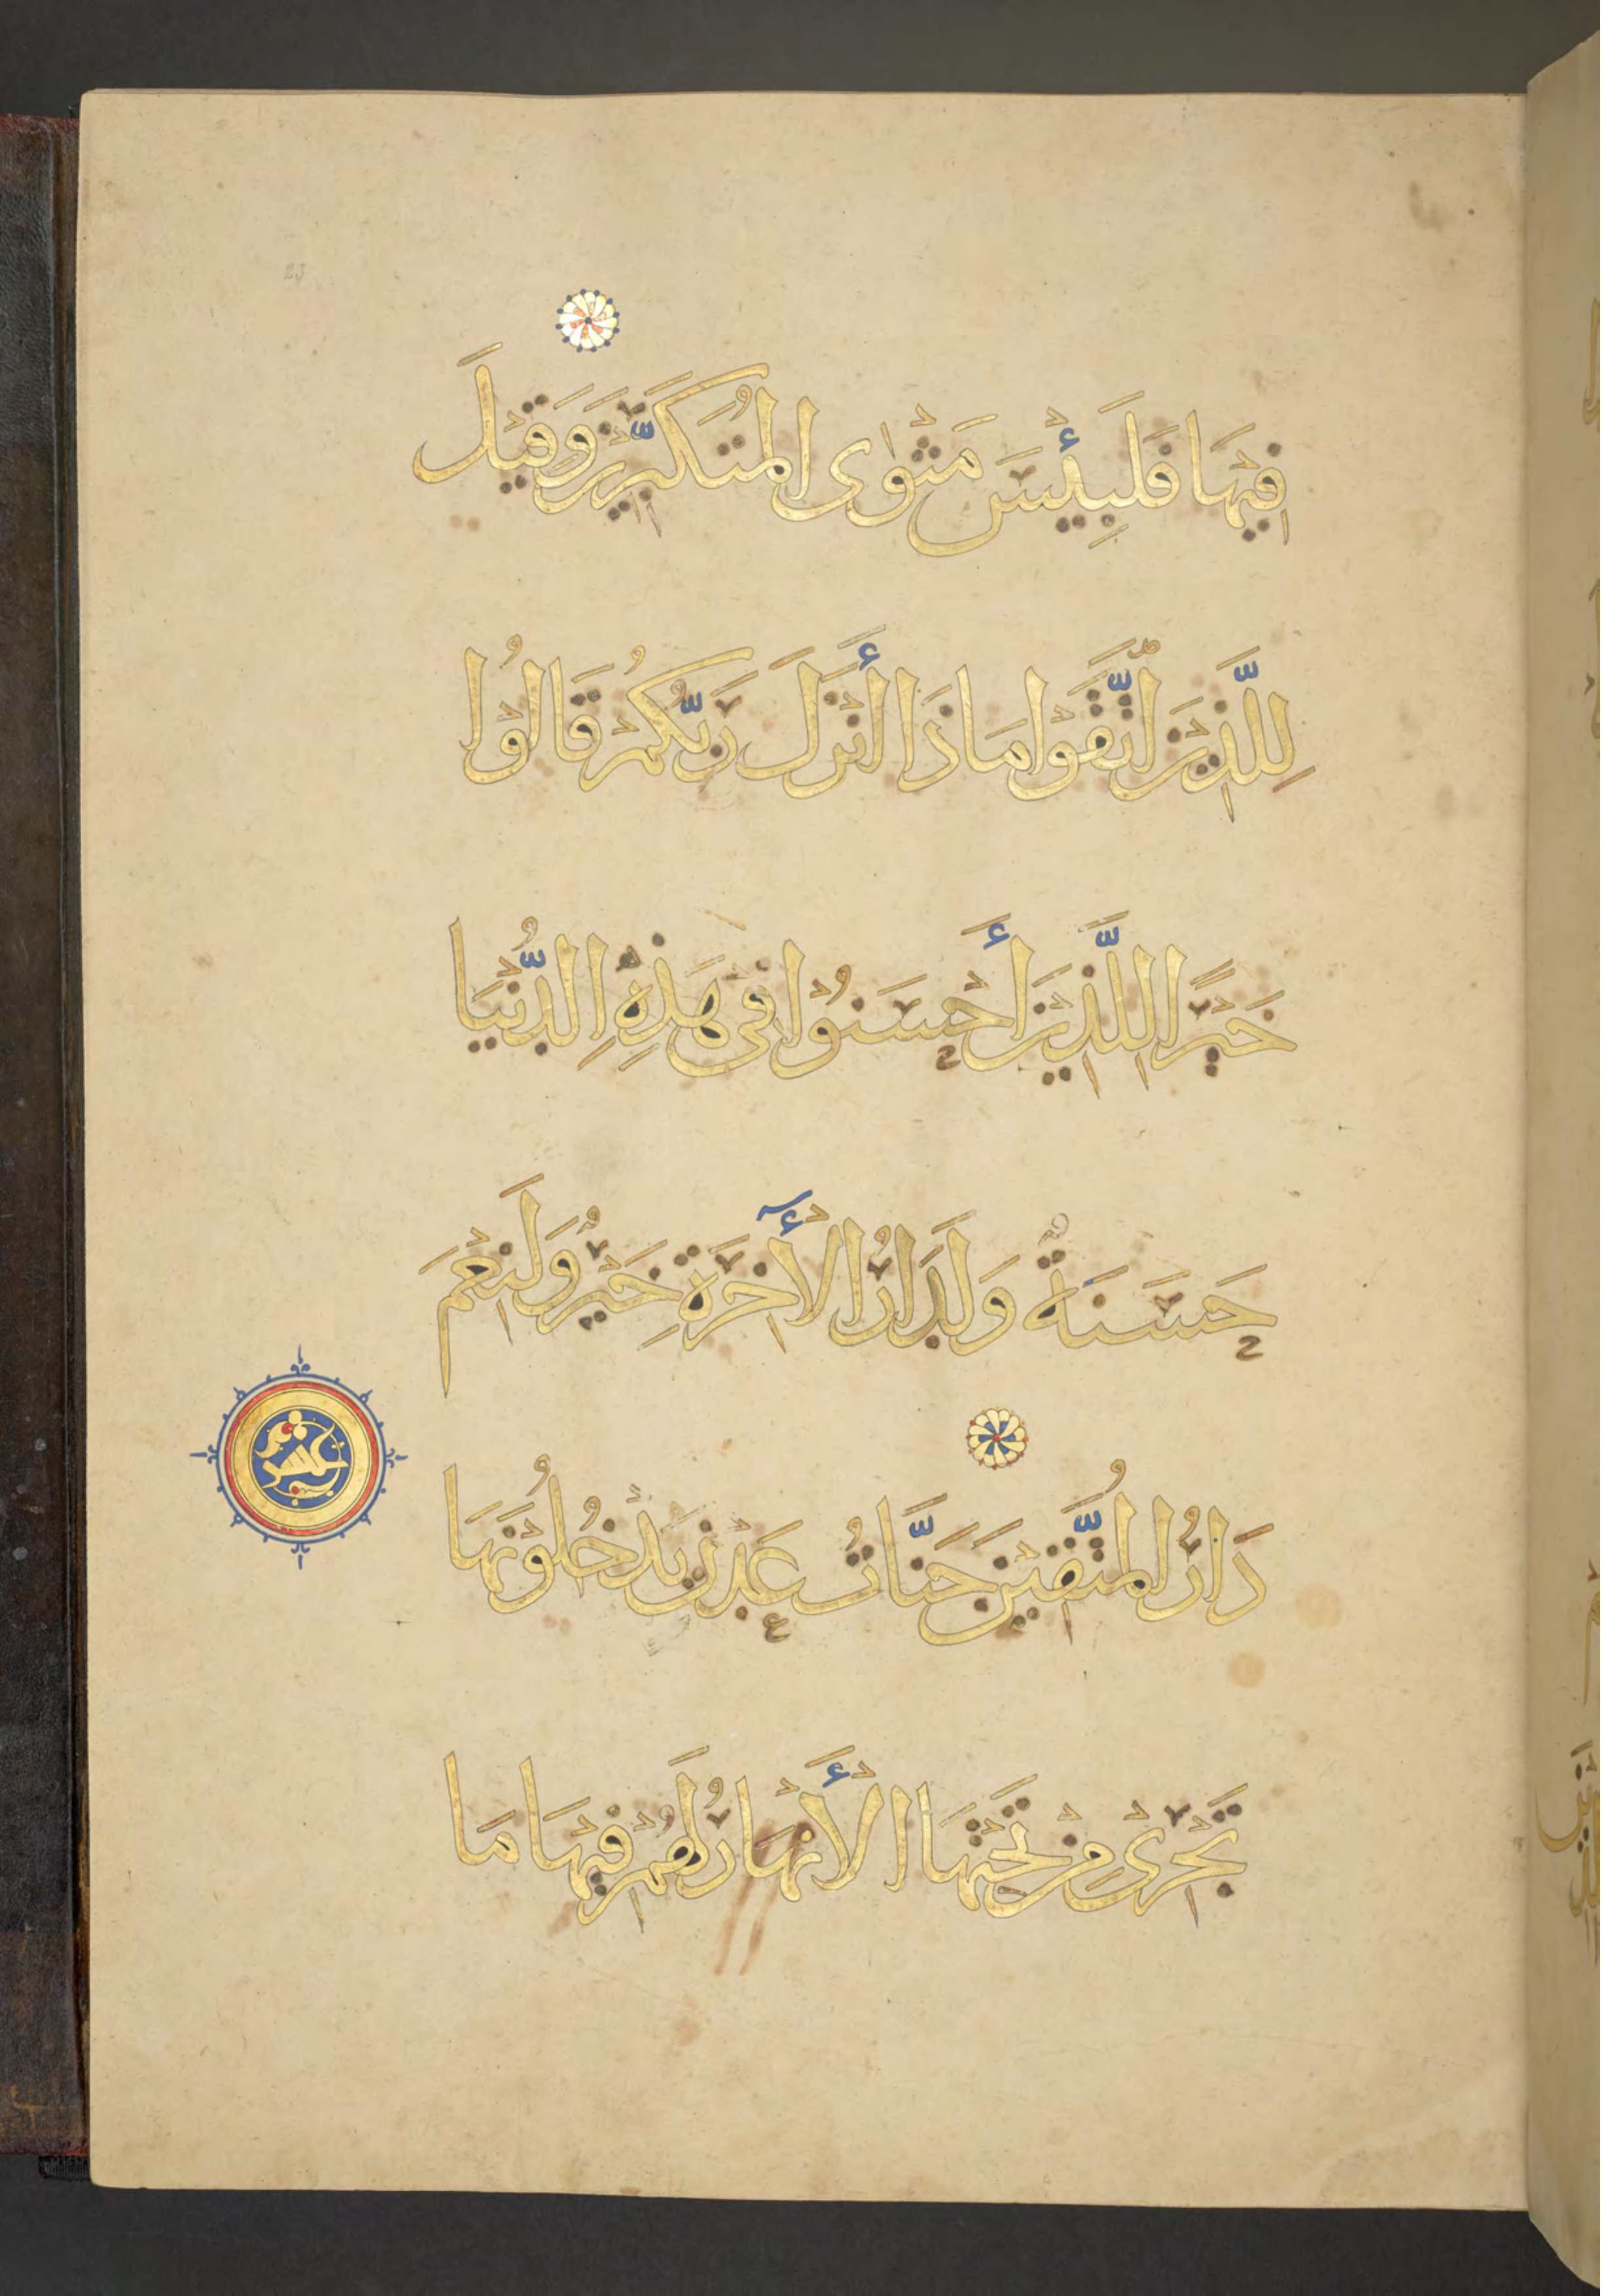 فِيْهَا فَلَبِئْسَ مَثْوٰى الْمُتَكَبِّرِيْنَ وَقِيْلَ
لِلَّذِيْنَ اتَّقَوْا مَاذَا أَنْزَلَ رَبُّكُمْ قَالُوْا
خَيْرًا لِلَّذِيْنَ أَحْسَنُوْا فِى هَذِهِ الدُّنْيَا
حَسَنَةٌ وَلَدَارُ الْأٓخِرَةِ خَيْرٌ وَلَنِعْمَ
عشر
دَارُ الْمُتَّقِيْنَ جَنَّاتُ عَدْنٍ يَدْخُلُوْنَهَا
تَجْرِىْ مِنْ تَحْتِهَا الْأَنْهَارُ لَهُمْ فِيْهَا مَا
23